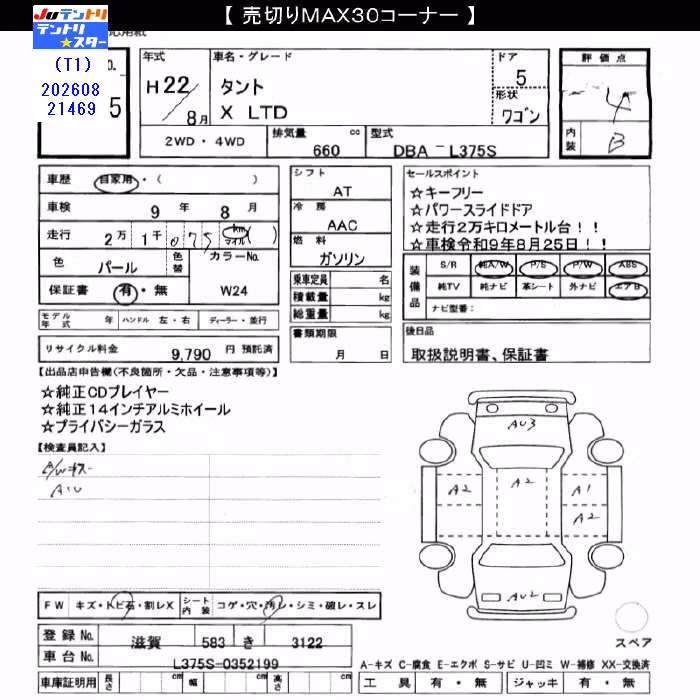 【 売切りMAX30コーナー 】
Juテントリ
テントリ
★スター
(T1)
202608
21469
5
年式
H22/8月
車名・グレード
タント
X LTD
ドア
5
形状
ワゴン
評価点
4
内装
B
2WD ・ 4WD
排気量 660 cc
型式 DBA－L375S
車歴 自家用・( )
車検 9 年 8 月
走行 2万 1千 075 km マイル ( )
色 パール
色替
カラーNo.
W24
保証書 有・無
モデル年式 年 ハンドル 左・右 ディーラー・並行
リサイクル料金 9,790 円 預託済
シフト
AT
冷房
AAC
燃料
ガソリン
乗車定員 名
積載量 kg
総重量 kg
書類期限
月 日
セールスポイント
☆キーフリー
☆パワースライドドア
☆走行2万キロメートル台！！
☆車検令和9年8月25日！！
装備品
S/R 純A/W P/S P/W ABS
純TV 純ナビ 革シート 外ナビ エアB
ナビ型番：
後日品
取扱説明書、保証書
【出品店申告欄(不良箇所・欠品・注意事項等)】
☆純正CDプレイヤー
☆純正14インチアルミホイール
☆プライバシーガラス
【検査員記入】
A/Wキズ
A・U
AU3
A2
A2
A1
A2
AU2
スペア
FW キズ・トビ石・割レX
シート内装 コゲ・穴・汚レ・シミ・破レ・スレ
登録No. 滋賀 583 き 3122
車台No. L375S-0352199
車庫証明用 長さ cm 幅 cm 高さ cm
A-キズ C-腐食 E-エクボ S-サビ U-凹ミ W-補修 XX-交換済
工具 有・無 ジャッキ 有・無